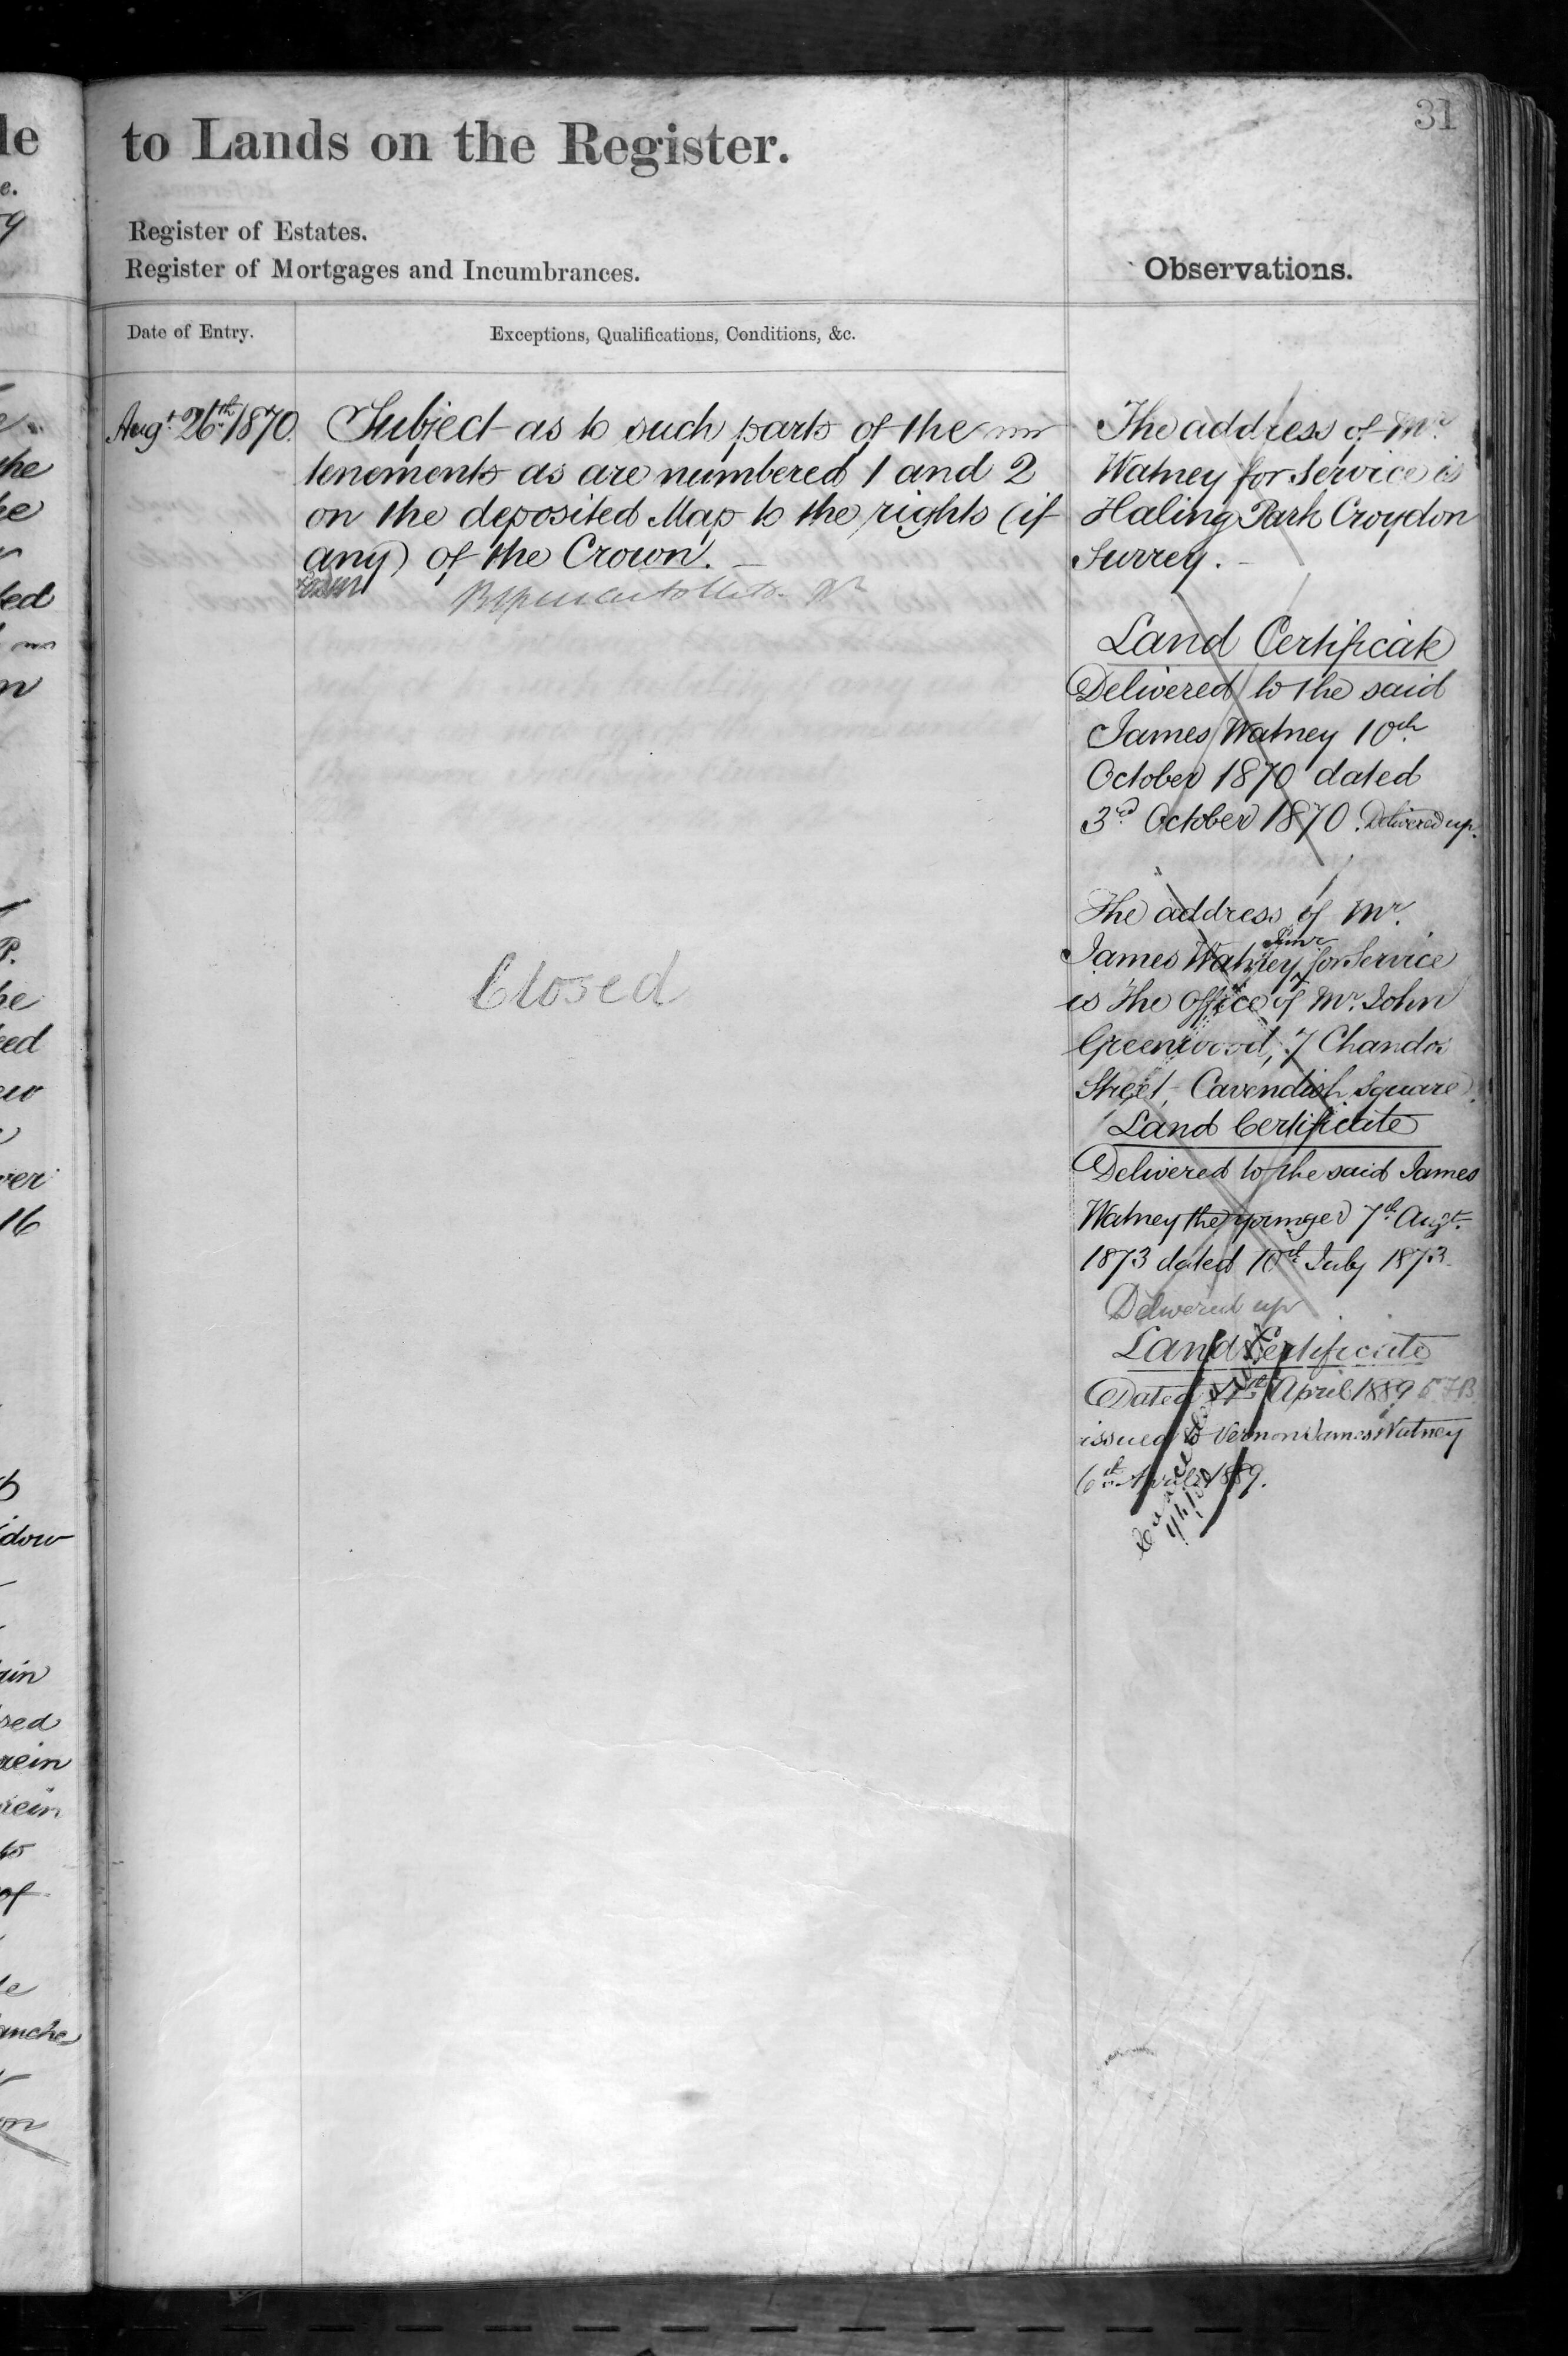 31
to Lands on the Register.
Register of Estates.
Register of Mortgages and Incumbrances.
Observations.
Date of Entry.
Exceptions, Qualifications, Conditions, &c.
Augt. 26th. 1870.
Subject as to such parts of the
tenements as are numbered 1 and 2
on the deposited Map to the rights (if
any) of the Crown.
Closed
The address of Mr.
Watney for Service is
Haling Park Croydon
Surrey.
Land Certificate
Delivered to the said
James Watney 10th
October 1870 dated
3rd October 1870. Delivered up.
The address of Mr.
James Watney Junr for Service
is the Office of Mr. John
Greenwood, 7 Chandos
Street, Cavendish Square.
Land Certificate
Delivered to the said James
Watney the younger 7th Augt.
1873 dated 10th July 1873.
Delivered up
Land Certificate
Dated April 1889
issued to Vernon James Watney
6th April 1889.
le
e.
the
he
led
P.
he
eed
ver
16
dow
ain
sed
rein
rein
to
of
le
anche